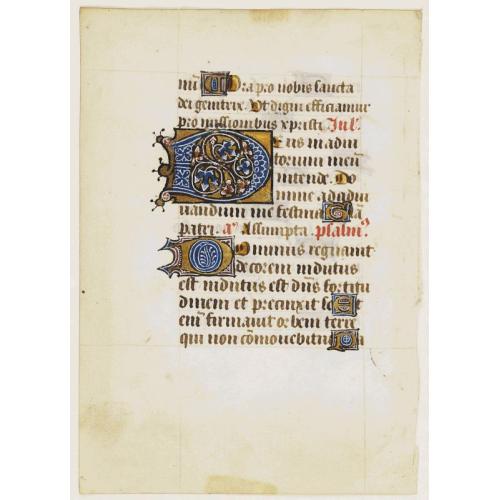 nū Ora pro nobis sancta
dei genitrix. Vt digni efficiamur
promissionibus xpristi.
Deus in adiu
torium meū
intende. Do
mine ad adiu
uandum me festina Glā
patri. añ Assumpta. psalm9
Dominus regnauit
decorem indutus
est indutus est dñs fortitu
dinem et precinxit se Et
eni firmauit orbem terre
qui non cōmouebitur